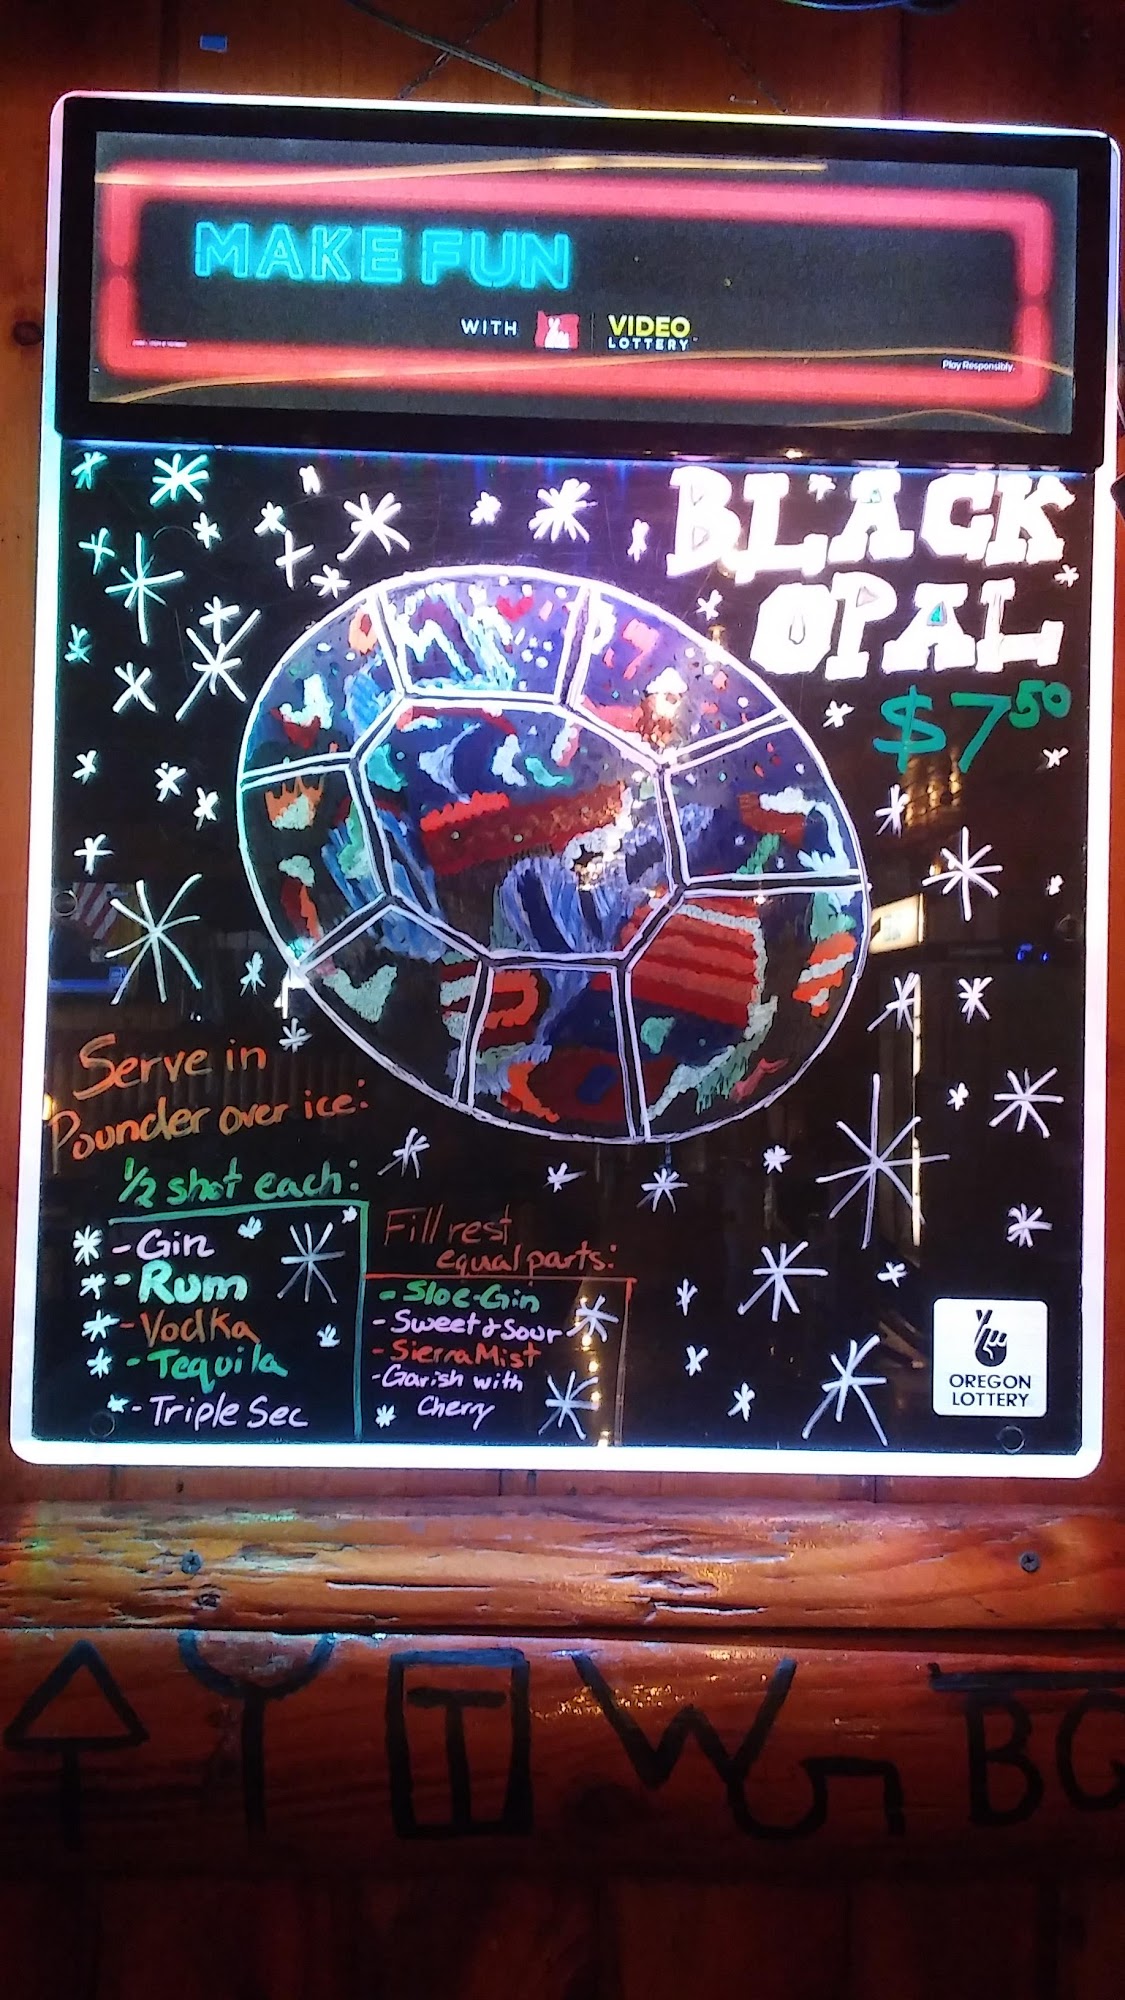 MAKE FUN
WITH VIDEO LOTTERY
Play Responsibly.
BLACK
OPAL
$7.50
Serve in
Pounder over ice:
1/2 shot each:
- Gin
- Rum
- Vodka
- Tequila
- Triple Sec
Fill rest
equal parts:
- Sloe-Gin
- Sweet & Sour
- Sierra Mist
- Garish with
Cherry
OREGON
LOTTERY